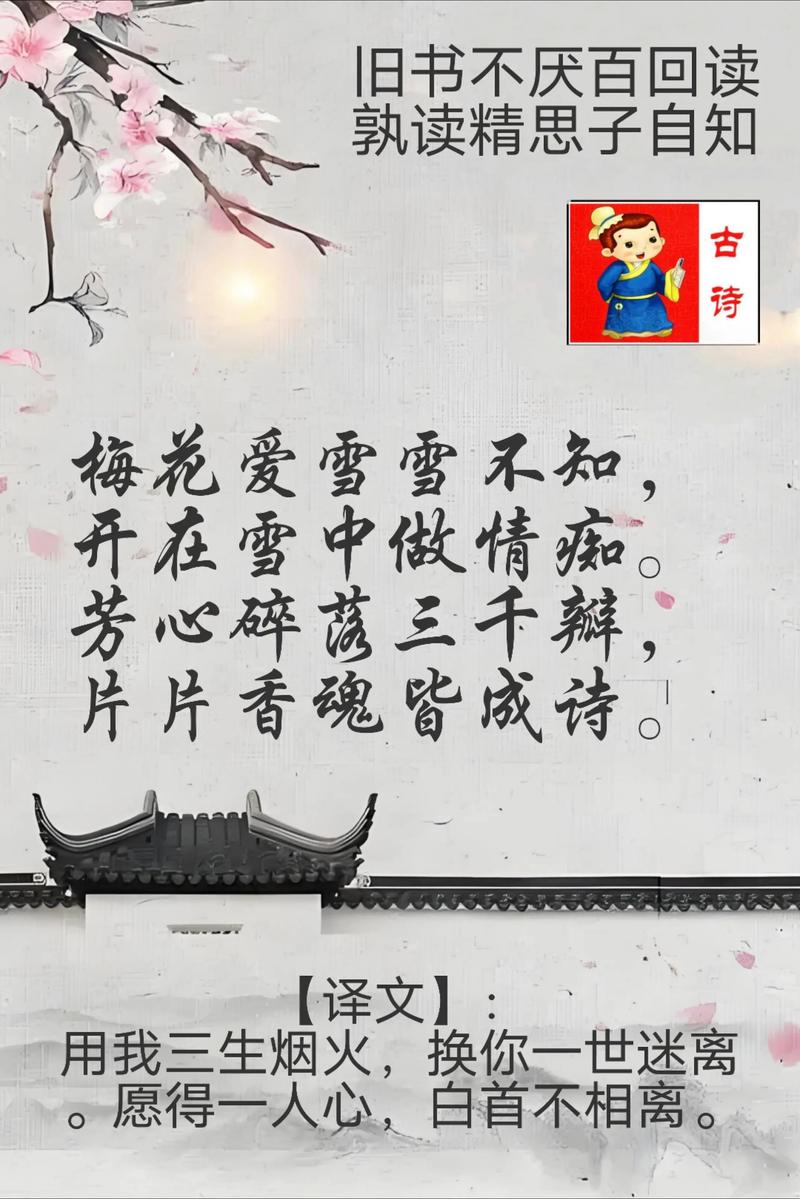 旧书不厌百回读
孰读精思子自知
古
诗
梅花爱雪雪不知，
开在雪中做情痴。
芳心碎落三千瓣，
片片香魂皆成诗。
【译文】：
用我三生烟火，换你一世迷离
。愿得一人心，白首不相离。